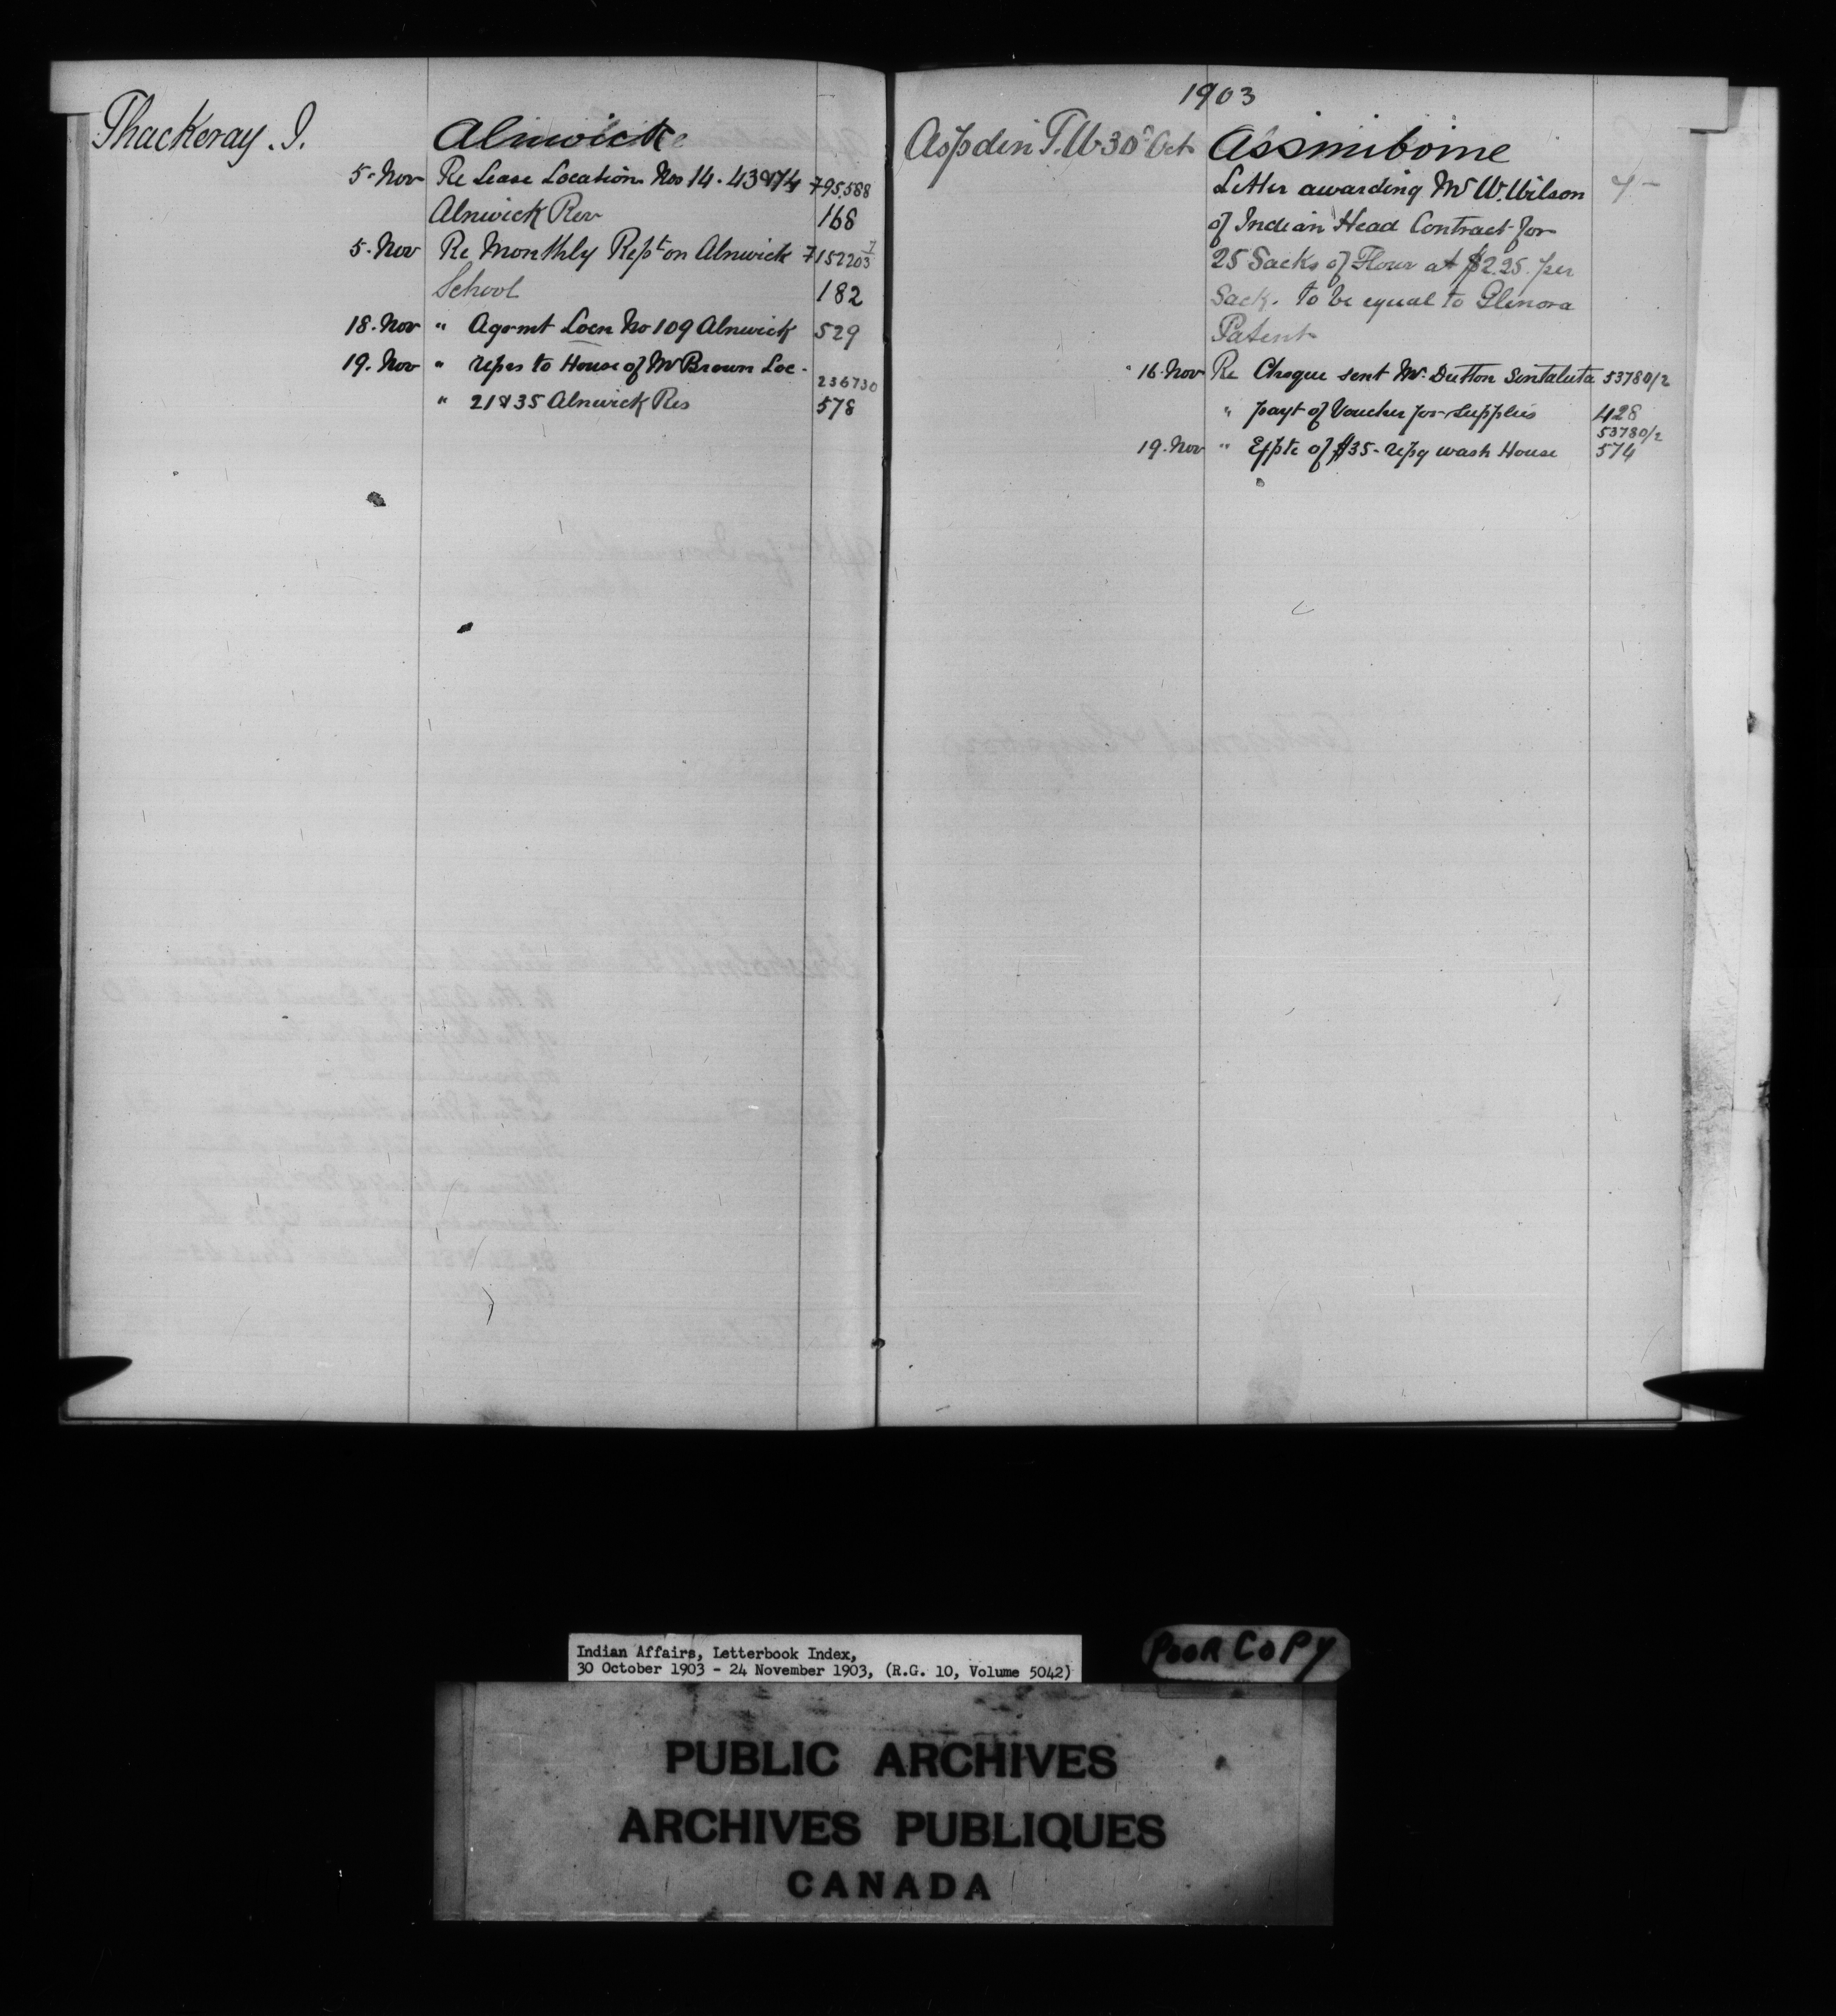 Thackeray. I.
Alnwick
5. Nov Re Lease Location Nos 14. 43 & 74 795,588
Alnwick Res 168
5. Nov Re Monthly Rept on Alnwick 152203
School 182
18. Nov " Agrmt Locn No 109 Alnwick 529
19. Nov " repes to House of Mr Brown Loc. 236730
" 21 & 35 Alnwick Res 578
1903
Aspdin T.W. 30 Oct Assiniboine
Letter awarding Mr W. Wilson 4-
of Indian Head Contract for
25 Sacks of Flour at $2.25 per
Sack. to be equal to Glenora
Patent
16. Nov Re Cheque sent Mr. Dutton Sintaluta 53780/2
" payt of Voucher for supplies 428
53780/2
19. Nov " Expte of $35- repg wash House 574
Indian Affairs, Letterbook Index,
30 October 1903 - 24 November 1903, (R.G. 10, Volume 5042)
POOR COPY
PUBLIC ARCHIVES
ARCHIVES PUBLIQUES
CANADA